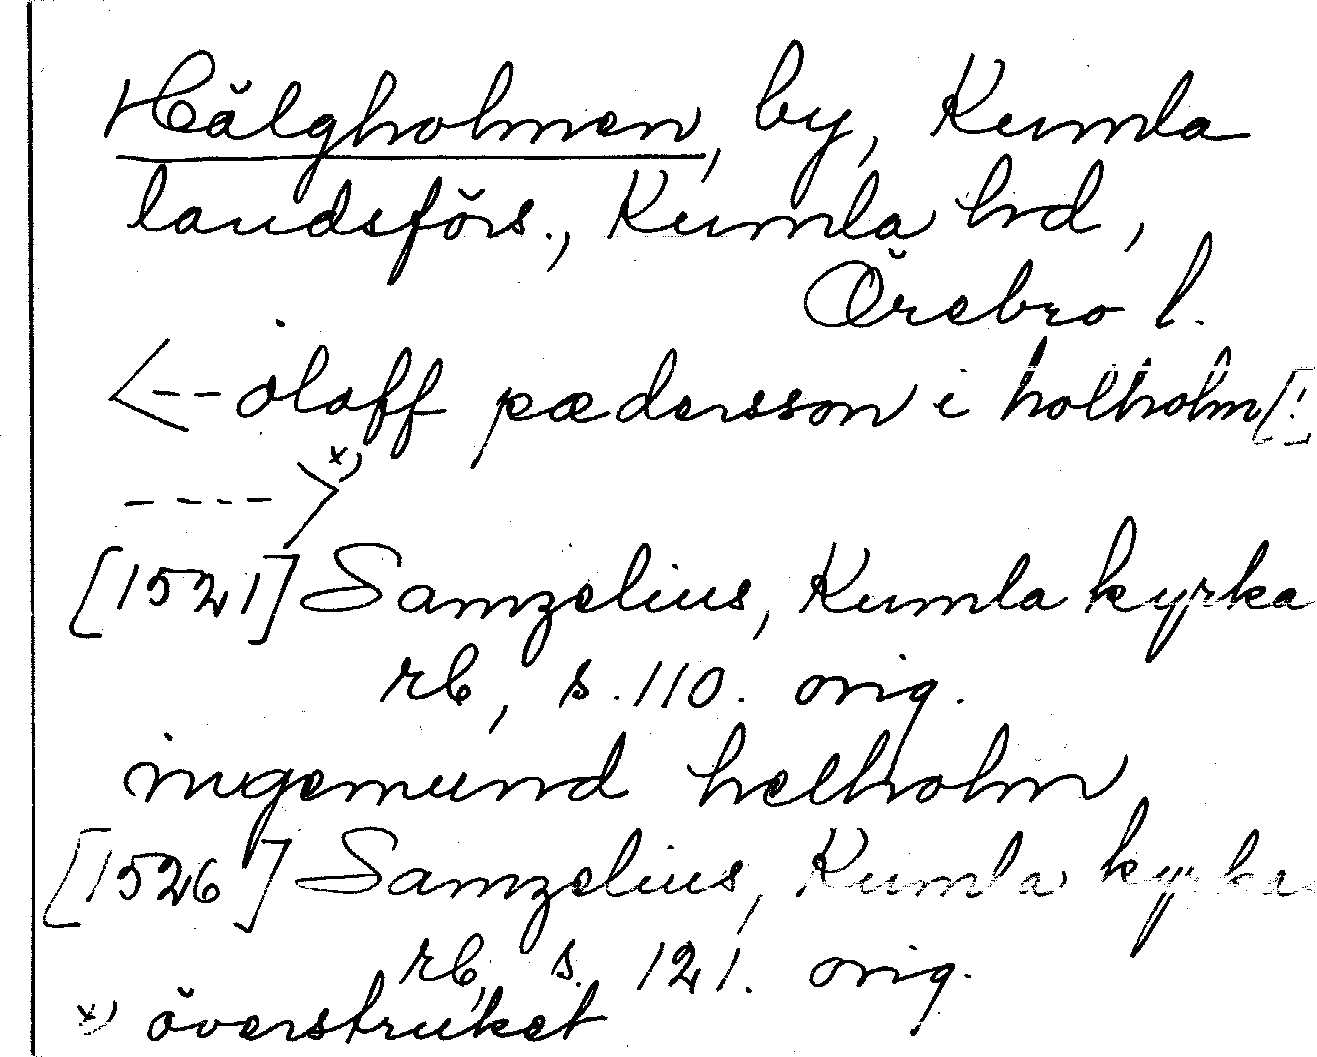 Hälgholmen, by, Kumla
landsförs., Kumla hrd,
Örebro l.
<-- olaff pædersson i holholm [!
---->x)
[1521] Samzelius, Kumla kyrka
rb, s. 110. orig.
ingemund helholm
[1526] Samzelius, Kumla kyrka
rb, s. 121. orig.
x) överstruket